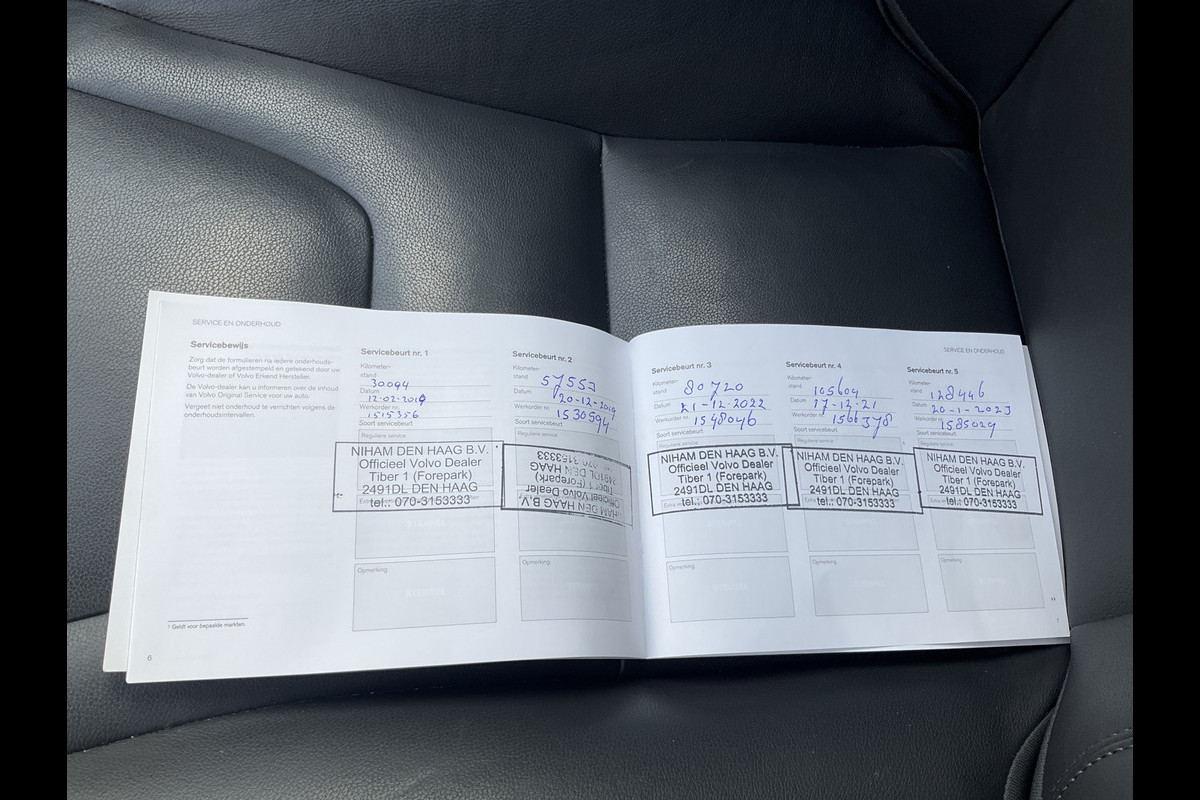 SERVICE EN ONDERHOUD
Servicebewijs
Zorg dat de formulieren na iedere onderhouds-
beurt worden afgestempeld en getekend door uw
Volvo-dealer of Volvo Erkend Hersteller.
De Volvo-dealer kan u informeren over de inhoud
van Volvo Original Service voor uw auto.
Vergeet niet onderhoud te verrichten volgens de
onderhoudsintervallen.
1 Geldt voor bepaalde markten.
6
Servicebeurt nr. 1
Kilometer-
stand 30094
Datum 12-02-2019
Werkorder nr. 1515356
Soort servicebeurt
Reguliere service
NIHAM DEN HAAG B.V.
Officieel Volvo Dealer
Tiber 1 (Forepark)
2491DL DEN HAAG
tel.: 070-3153333
Opmerking
Servicebeurt nr. 2
Kilometer-
stand 57553
Datum 20-12-2019
Werkorder nr. 1530594
Soort servicebeurt
Reguliere service
NIHAM DEN HAAG B.V.
Officieel Volvo Dealer
Tiber 1 (Forepark)
2491DL DEN HAAG
070-3153333
Opmerking
SERVICE EN ONDERHOUD
Servicebeurt nr. 3
Kilometer-
stand 80720
Datum 21-12-2022
Werkorder nr. 1548046
Soort servicebeurt
Reguliere service
NIHAM DEN HAAG B.V.
Officieel Volvo Dealer
Tiber 1 (Forepark)
2491DL DEN HAAG
tel.: 070-3153333
Opmerking
Servicebeurt nr. 4
Kilometer-
stand 105604
Datum 17-12-21
Werkorder nr. 1566378
Soort servicebeurt
Reguliere service
NIHAM DEN HAAG B.V.
Officieel Volvo Dealer
Tiber 1 (Forepark)
2491DL DEN HAAG
tel.: 070-3153333
Opmerking
Servicebeurt nr. 5
Kilometer-
stand 128446
Datum 20-1-2023
Werkorder nr. 1585029
Soort servicebeurt
Reguliere service
NIHAM DEN HAAG B.V.
Officieel Volvo Dealer
Tiber 1 (Forepark)
2491DL DEN HAAG
tel.: 070-3153333
Opmerking
7